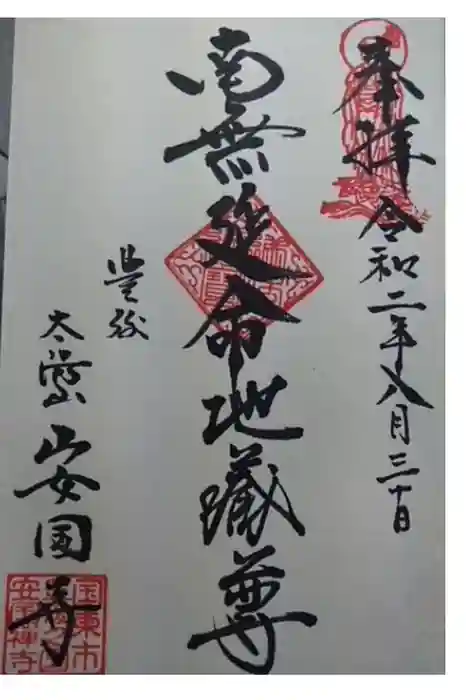 奉拝 令和二年八月三十日
南無延命地蔵尊
豊後
太陽山 安国寺
国東市
安国禅寺